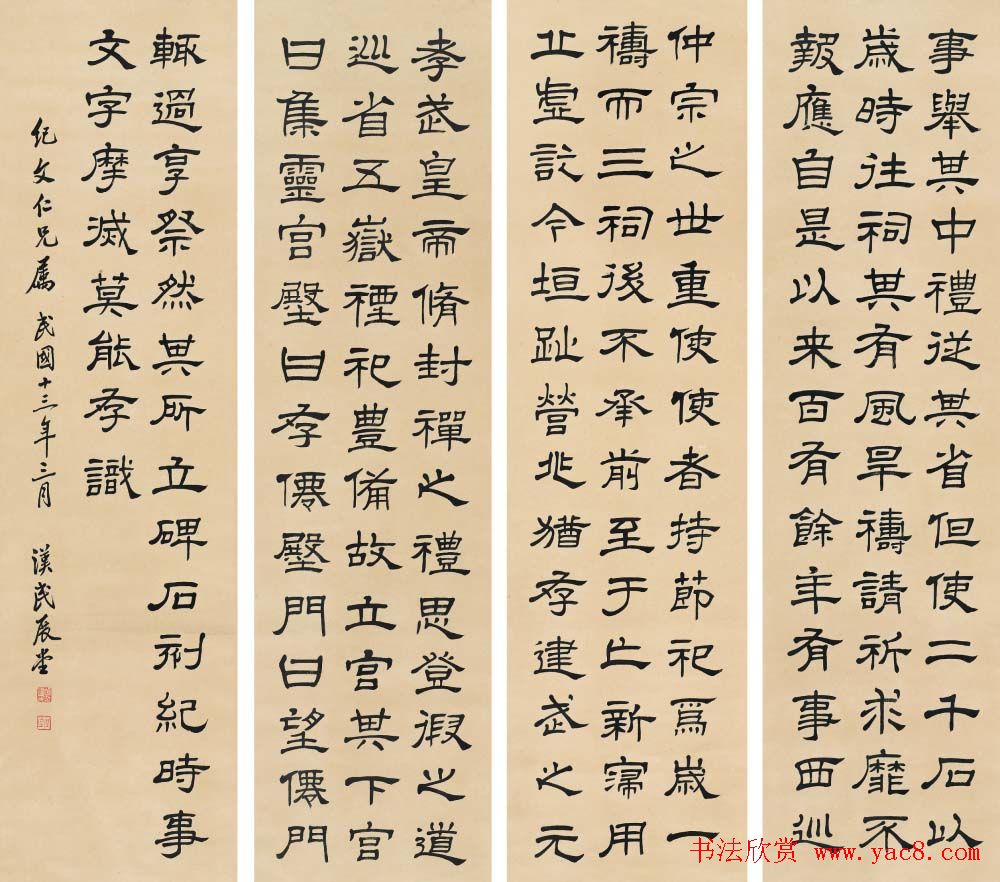 孝武皇帝脩封禪之禮思登徦之道
巡省五嶽禋祀豐備故立宮其下宮
曰集靈宮殿曰存僊殿門曰望僊門
仲宗之世重使使者持節祀焉歲一
禱而三祠後不承前至于亡新寖用
丘虛訖今垣趾營兆猶存建武之元
事舉其中禮從其省但使二千石以
歲時往祠其有風旱禱請祈求靡不
報應自是以來百有餘年有事西巡
輒過享祭然其所立碑石刻紀時事
文字摩滅莫能存識
紀文仁兄屬 民國十三年三月 漢民展堂
书法欣赏 www.yac8.com